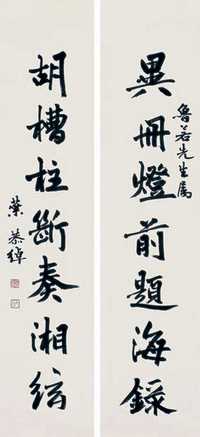 異冊燈前題海錄
魯若先生屬
胡槽柱斷奏湘絃
葉恭綽